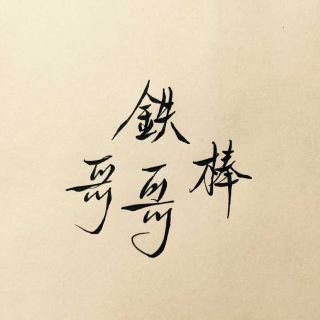 鉄
哥哥棒